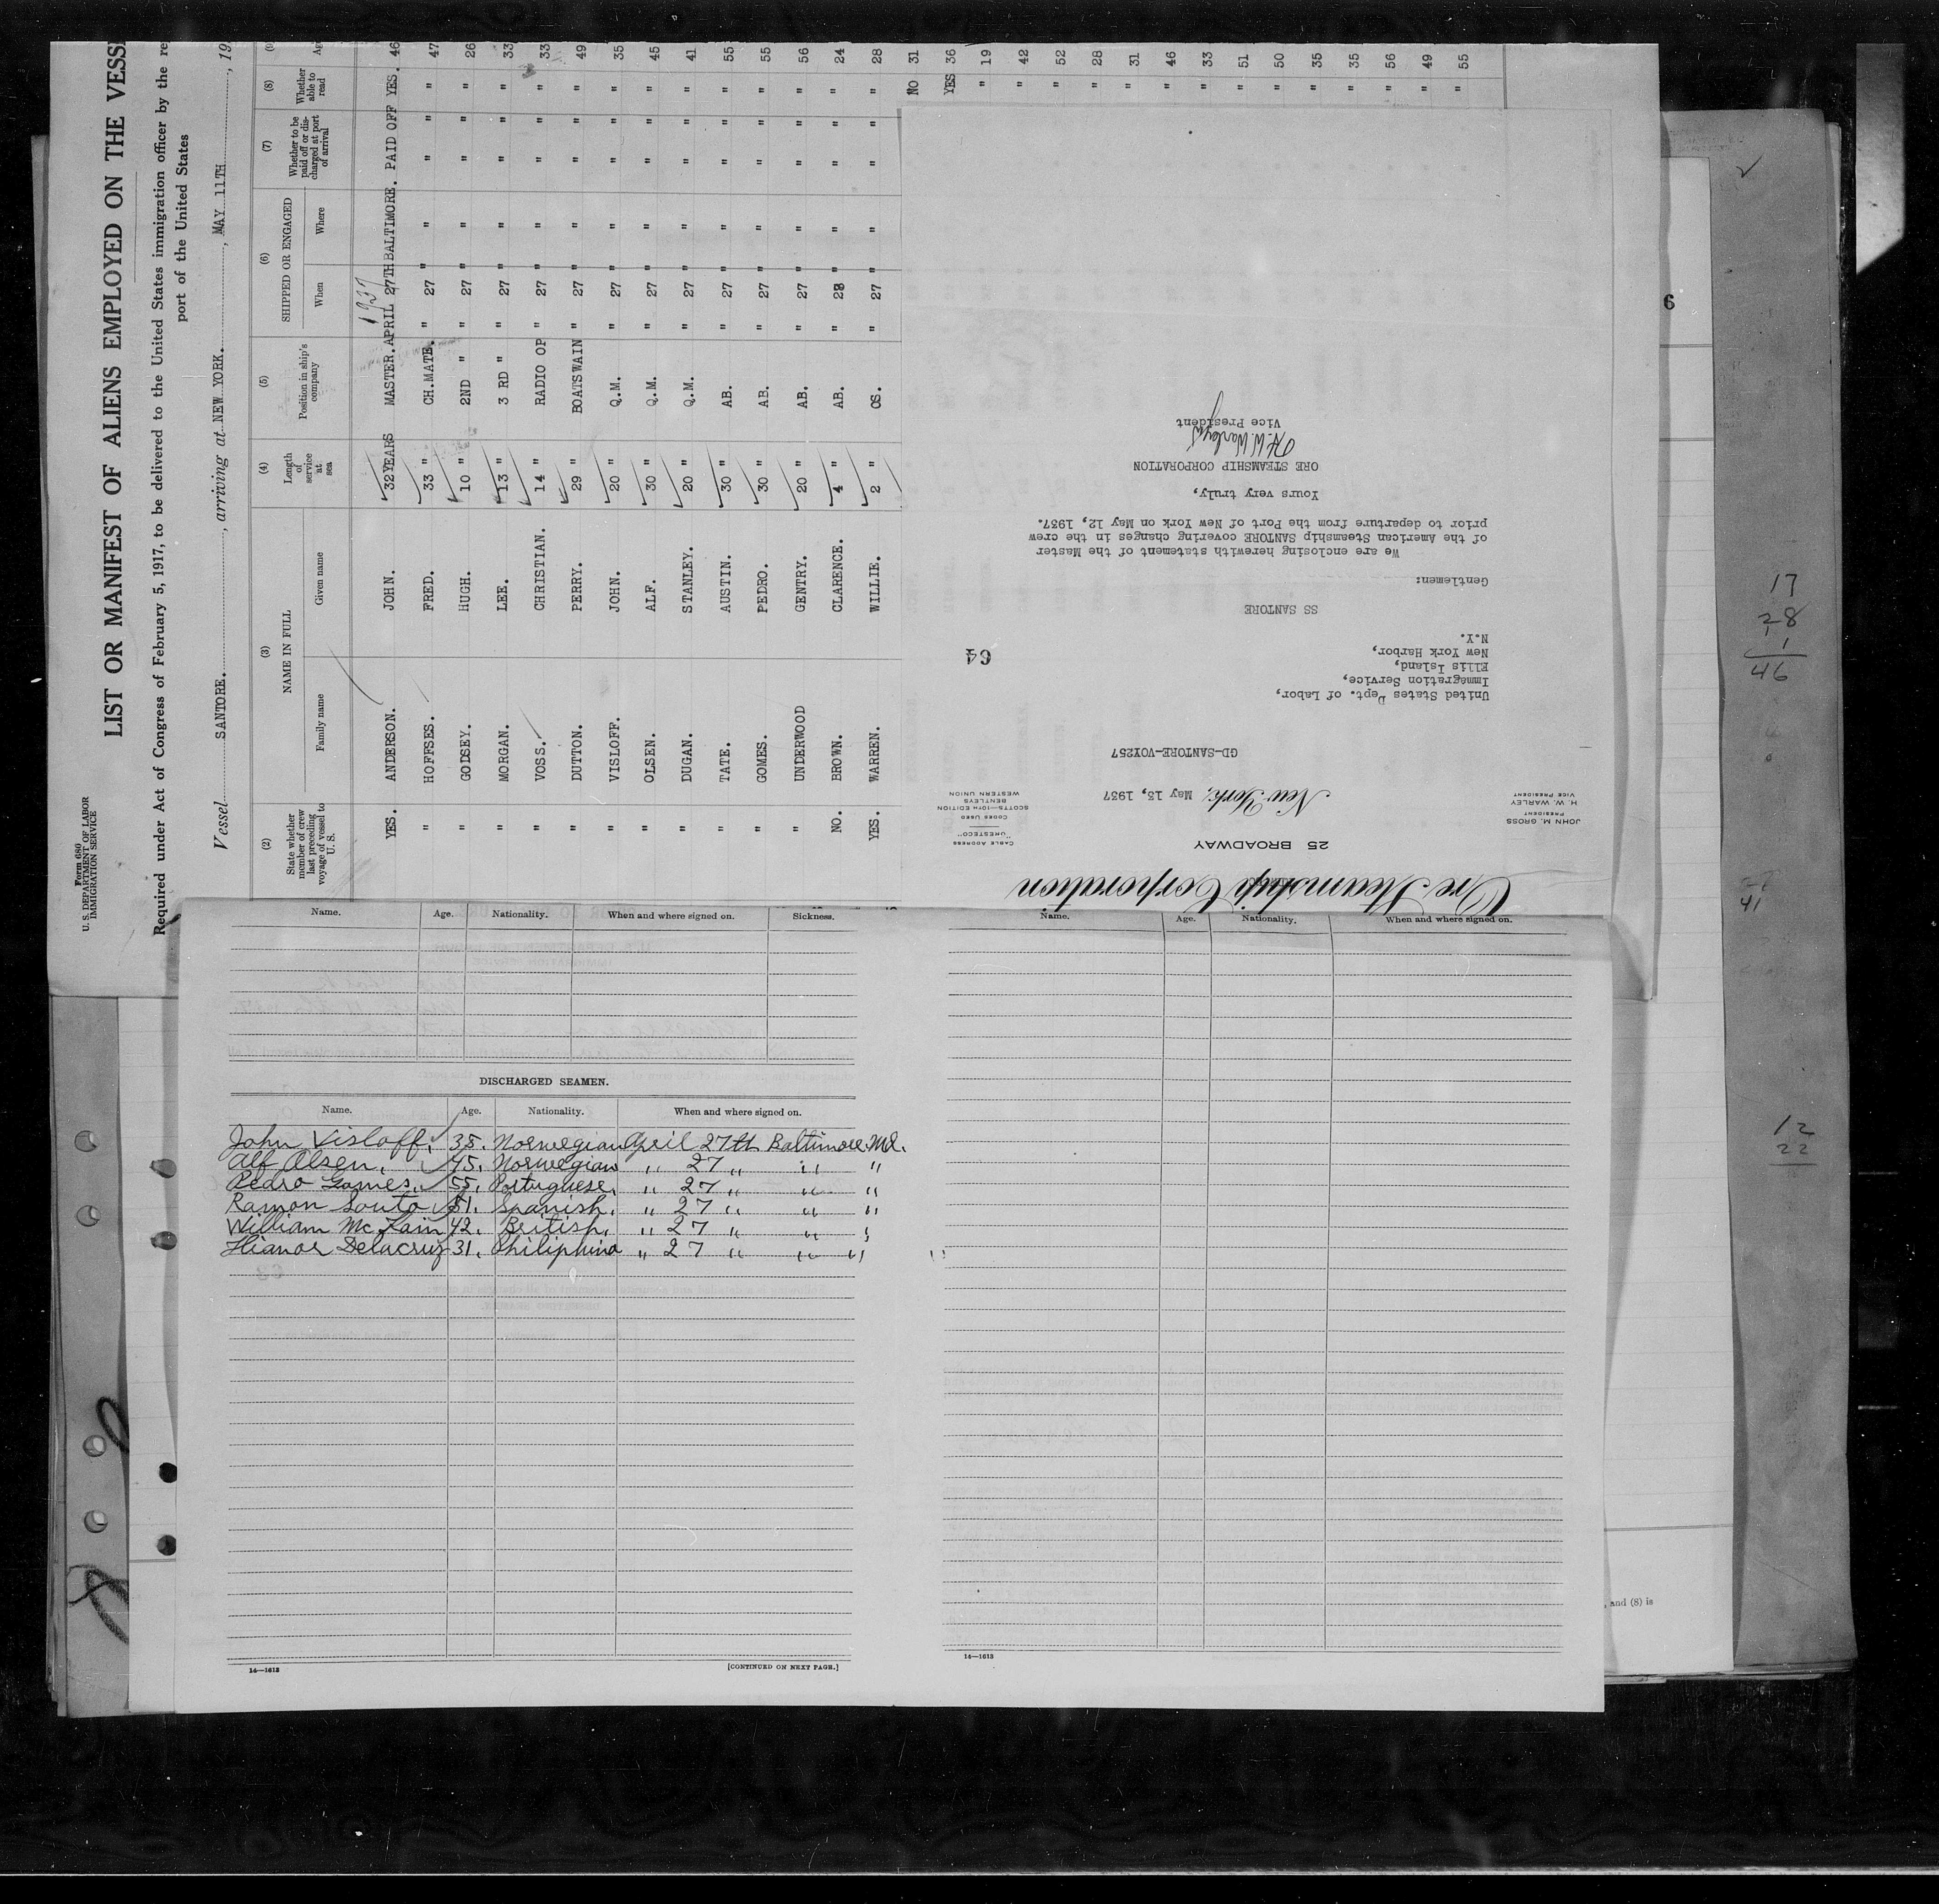 Form 680
U. S. DEPARTMENT OF LABOR
IMMIGRATION SERVICE
LIST OR MANIFEST OF ALIENS EMPLOYED ON THE VESSE
Required under Act of Congress of February 5, 1917, to be delivered to the United States immigration officer by the re
port of the United States
Vessel SANTORE. , arriving at NEW YORK. , MAY 11TH , 19
(2) (3) (4) (5) (6) (7) (8)
State whether member of crew last preceding voyage of vessel to U. S.
NAME IN FULL
Family name Given name
Length of service at sea
Position in ship's company
SHIPPED OR ENGAGED
When Where
Whether to be paid off or discharged at port of arrival
Whether able to read
1937
YES. ANDERSON. JOHN. 32YEARS MASTER. APRIL 27TH BALTIMORE. PAID OFF YES. 46
" HOFFSES. FRED. 33 " CH.MATE. " 27 " " " " " 47
" GODSEY. HUGH. 10 " 2ND " " 27 " " " " " 26
" MORGAN. LEE. 13 " 3 RD " " 27 " " " " " 33
" VOSS. CHRISTIAN. 14 " RADIO OP " 27 " " " " " 33
" DUTTON. PERRY. 29 " BOATSWAIN " 27 " " " " " 49
" VISLOFF. JOHN. 20 " Q.M. " 27 " " " " " 35
" OLSEN. ALF. 30 " Q.M. " 27 " " " " " 45
" DUGAN. STANLEY. 20 " Q.M. " 27 " " " " " 41
" TATE. AUSTIN. 30 " AB. " 27 " " " " " 55
" GOMES. PEDRO. 30 " AB. " 27 " " " " " 55
" UNDERWOOD GENTRY. 20 " AB. " 27 " " " " " 56
NO. BROWN. CLARENCE. 4 " AB. " 28 " " " " " 24
YES. WARREN. WILLIE. 2 " OS. " 27 " " " " " 28
NO 31
YES 36
" 19
" 42
" 52
" 28
" 31
" 46
" 33
" 51
" 50
" 35
" 35
" 56
" 49
" 55
Ore Steamship Corporation
25 BROADWAY
JOHN M. GROSS
PRESIDENT
H. W. WARLEY
VICE PRESIDENT
CABLE ADDRESS
"ORESTECO"
CODES USED
SCOTTS—10TH EDITION
BENTLEYS
WESTERN UNION
New York, May 13, 1937
GD-SANTORE-VOY257
United States Dept. of Labor,
Immigration Service,
Ellis Island,
New York Harbor,
N.Y.
64
SS SANTORE
Gentlemen:
We are enclosing herewith statement of the Master
of the American Steamship SANTORE covering changes in the crew
prior to departure from the Port of New York on May 12, 1937.
Yours very truly,
ORE STEAMSHIP CORPORATION
H.W. Warley
Vice President
Name. Age. Nationality. When and where signed on. Sickness.
DISCHARGED SEAMEN.
Name. Age. Nationality. When and where signed on.
John Visloff. 35. Norwegian April 27th Baltimore Md.
Alf Olsen. 45. Norwegian " 27 " " "
Pedro Gomes. 55. Portuguese. " 27 " " "
Ramon Souto 51. Spanish. " 27 " " "
William McKain 42. British. " 27 " " "
Delacruz 31. Philiphino " 27 " " "
14—1613 [CONTINUED ON NEXT PAGE.]
Name. Age. Nationality. When and where signed on.
14—1613
6
17
28
1
46
41
12
22
, and (8) is